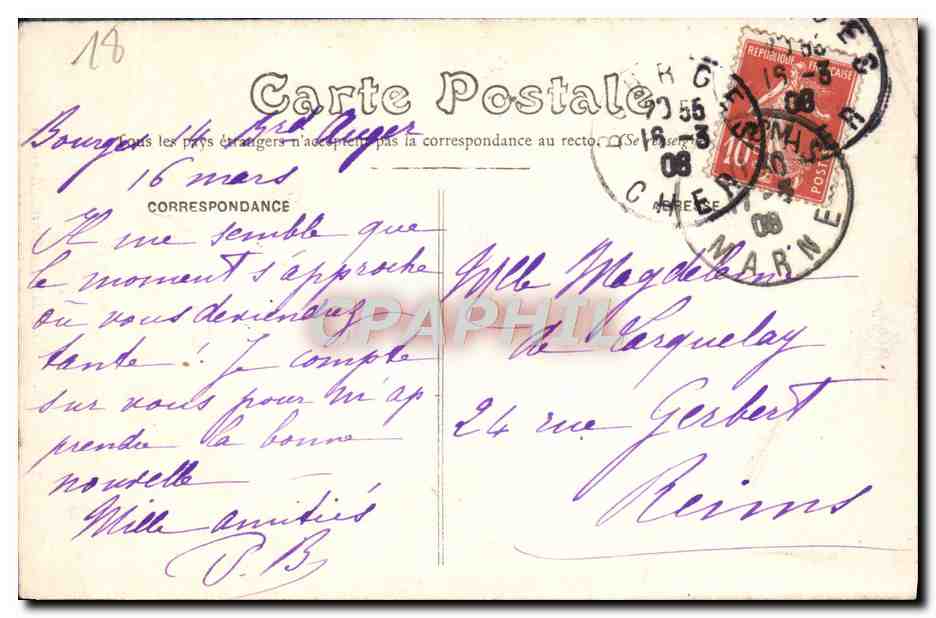 18
Carte Postale
Bourges 14 Brd Auger
Tous les pays étrangers n'acceptent pas la correspondance au recto. (Se renseig
16 mars
CORRESPONDANCE
ADRESSE
Il me semble que
le moment s'approche
où vous deviendrez
tante ! Je compte
sur vous pour m'ap-
prendre la bonne
nouvelle
Mille amitiés
P. B
Mlle Magdeleine
de Varquelay
24 rue Gerbert
Reims
REPUBLIQUE FRANÇAISE
10
POSTES
BOURGES
20 55
16 - 3
08
CHER
16 - 3
08
REIMS
08
MARNE
CPAPHIL